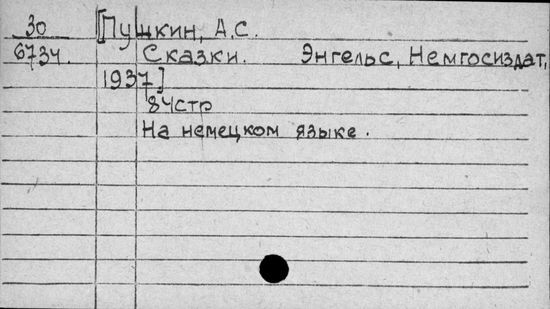 30 [Пушкин, А.С.
6734. Сказки. Энгельс, Немгосиздат,
1937]
84стр
На немецком языке.